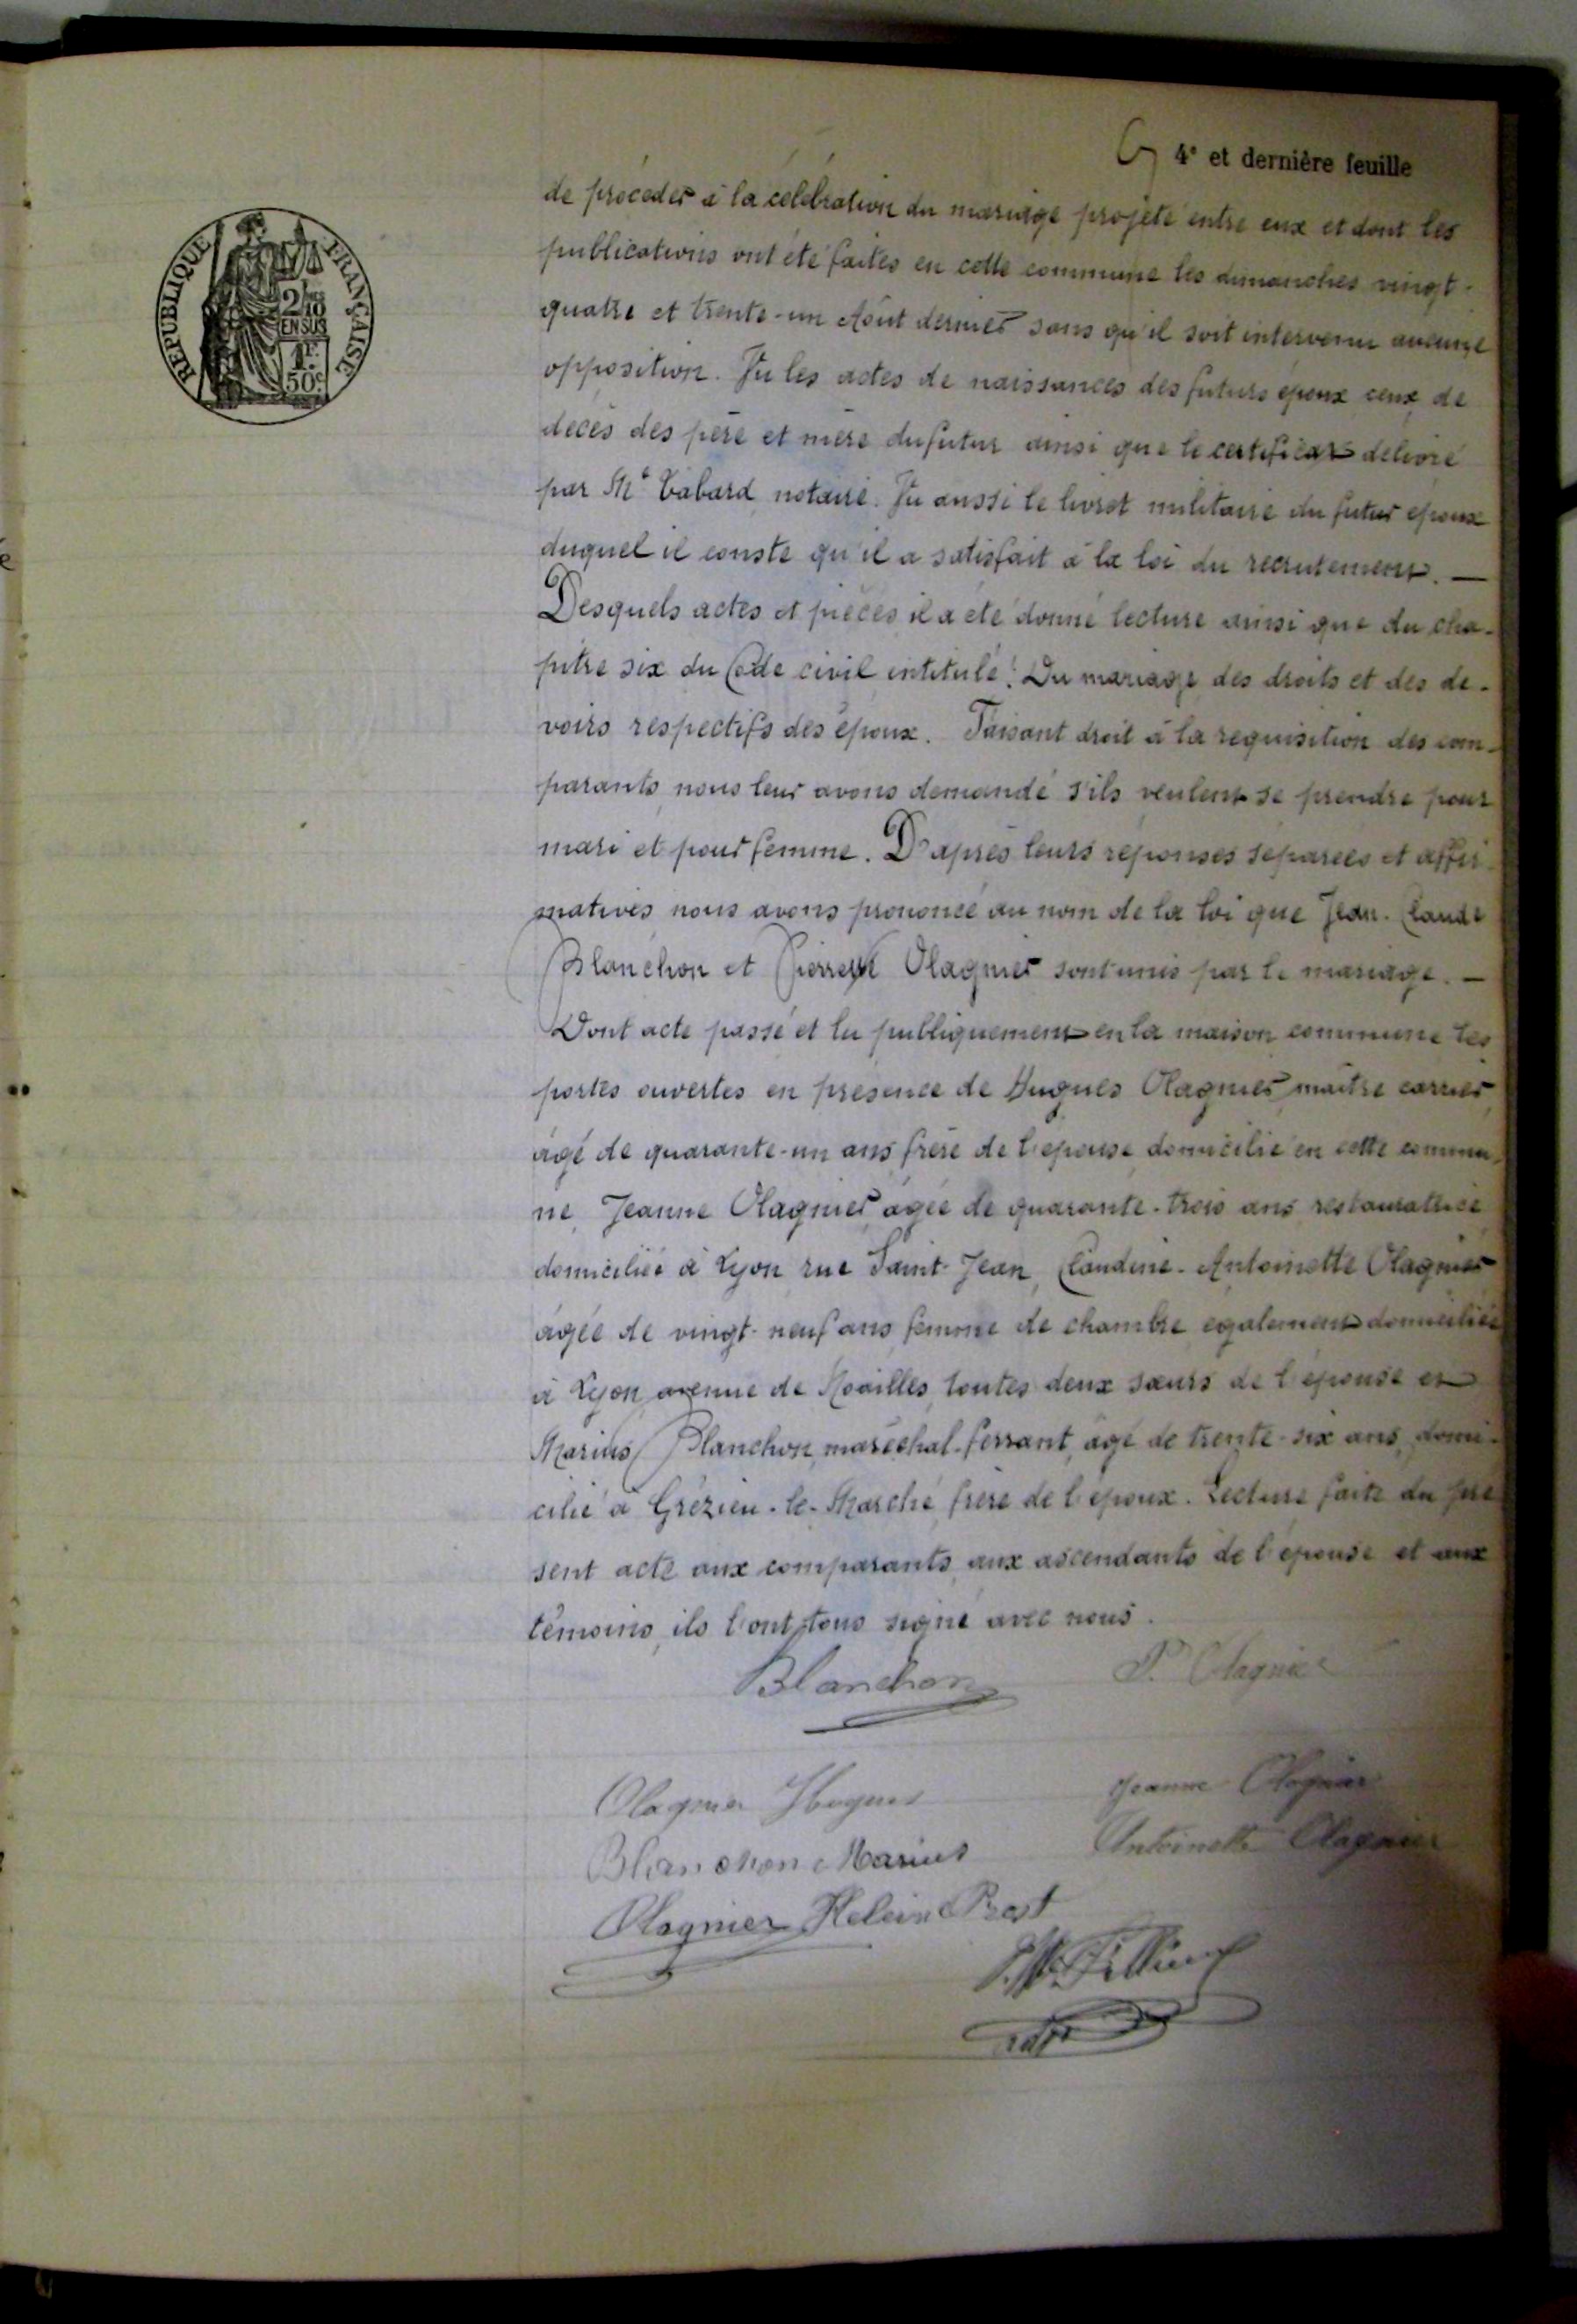 4e et dernière feuille
RÉPUBLIQUE FRANÇAISE
2/10
EN SUS
1F
50c
de procéder à la célébration du mariage projeté entre eux et dont les
publications ont été faites en cette commune les dimanches vingt-
quatre et trente-un Août dernier sans qu'il soit intervenu aucune
opposition. Vu les actes de naissances des futurs époux ceux de
décès des père et mère du futur ainsi que le certificat délivré
par Me Tabard notaire. Vu aussi le livret militaire du futur époux
duquel il conste qu'il a satisfait à la loi du recrutement. —
Desquels actes et pièces il a été donné lecture ainsi que du cha-
pitre six du Code civil intitulé : Du mariage des droits et des de-
voirs respectifs des époux. Faisant droit à la requisition des com-
parants nous leur avons demandé s'ils veulent se prendre pour
mari et pour femme. D'après leurs réponses séparées et affir-
matives nous avons prononcé au nom de la loi que Jean-Claude
Blanchon et Pierrette Olagnier sont unis par le mariage. —
Dont acte passé et lu publiquement en la maison commune les
portes ouvertes en présence de Hugues Olagnier maître carrier
âgé de quarante-un ans frère de l'épouse domicilié en cette commu-
ne, Jeanne Olagnier âgée de quarante-trois ans restauratrice
domiciliée à Lyon rue Saint-Jean, Claudine-Antoinette Olagnier
âgée de vingt-neuf ans femme de chambre également domiciliée
à Lyon avenue de Noailles, toutes deux sœurs de l'épouse et
Marius Blanchon, maréchal-ferrant, âgé de trente-six ans, domi-
cilié à Grézieu-le-Marché frère de l'époux. Lecture faite du pré
sent acte aux comparants, aux ascendants de l'épouse et aux
témoins, ils l'ont tous signé avec nous.
Blanchon P. Olagnier
Olagnier Hugues Jeanne Olagnier
Blanchon Marius Antoinette Olagnier
Olagnier Prost